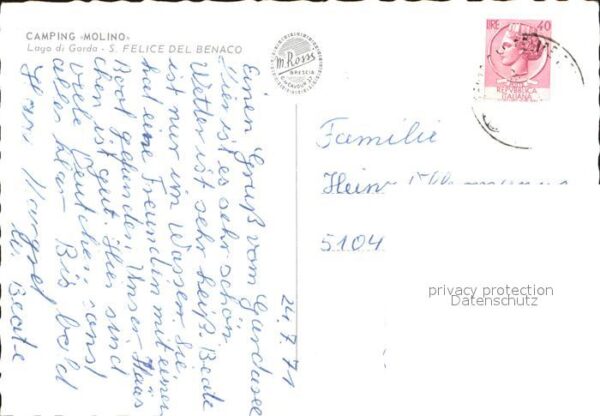 CAMPING «MOLINO»
Lago di Garda - S. FELICE DEL BENACO
m. Ross
BRESCIA
LIRE 40
REPVBBLICA
ITALIANA
24.7.71
Einen Gruß vom Gardasee
Hier ist es sehr schön.
Wetter ist sehr heiß. Beate
ist nur im Wasser. Sie
hat eine Freundin mit einem
Boot gefunden. Unser Häus
chen ist gut. Hier sind
viele Deutsche, sonst
alles klar. Bis bald
u. Beate
Familie
Hein
5104
privacy protection
Datenschutz